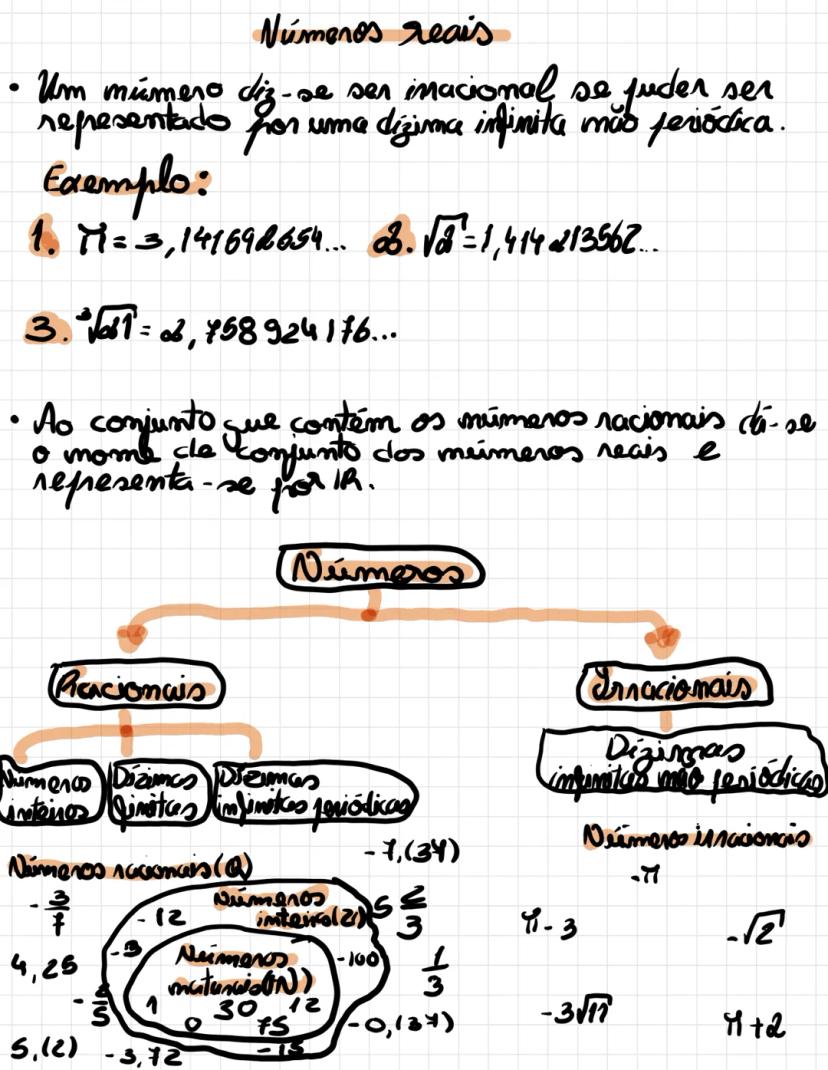 Números reais
• Um número diz-se ser irracional se puder ser
representado por uma dízima infinita não periódica.
Exemplo:
1. π = 3,141592654... 2. √2 = 1,414213562...
3. ³√21 = 2,758924176...
• Ao conjunto que contém os números racionais dá-se
o nome de conjunto dos números reais e
representa-se por IR.
Números
Racionais Irracionais
Números inteiros
Dízimas finitas
Dízimas infinitas periódicas
Dízimas
infinitas não periódicas
Números irracionais
Números racionais (Q)
-7,(34)
-π
-3/7
-12
Números
inteiros(Z)
5 2/3
π-3
-√2
4,25
-3
Números
naturais(IN)
-100
1/3
-2/5
1
30
12
0
75
-0,(37)
-3√17
π+2
5,(2)
-3,72
-15